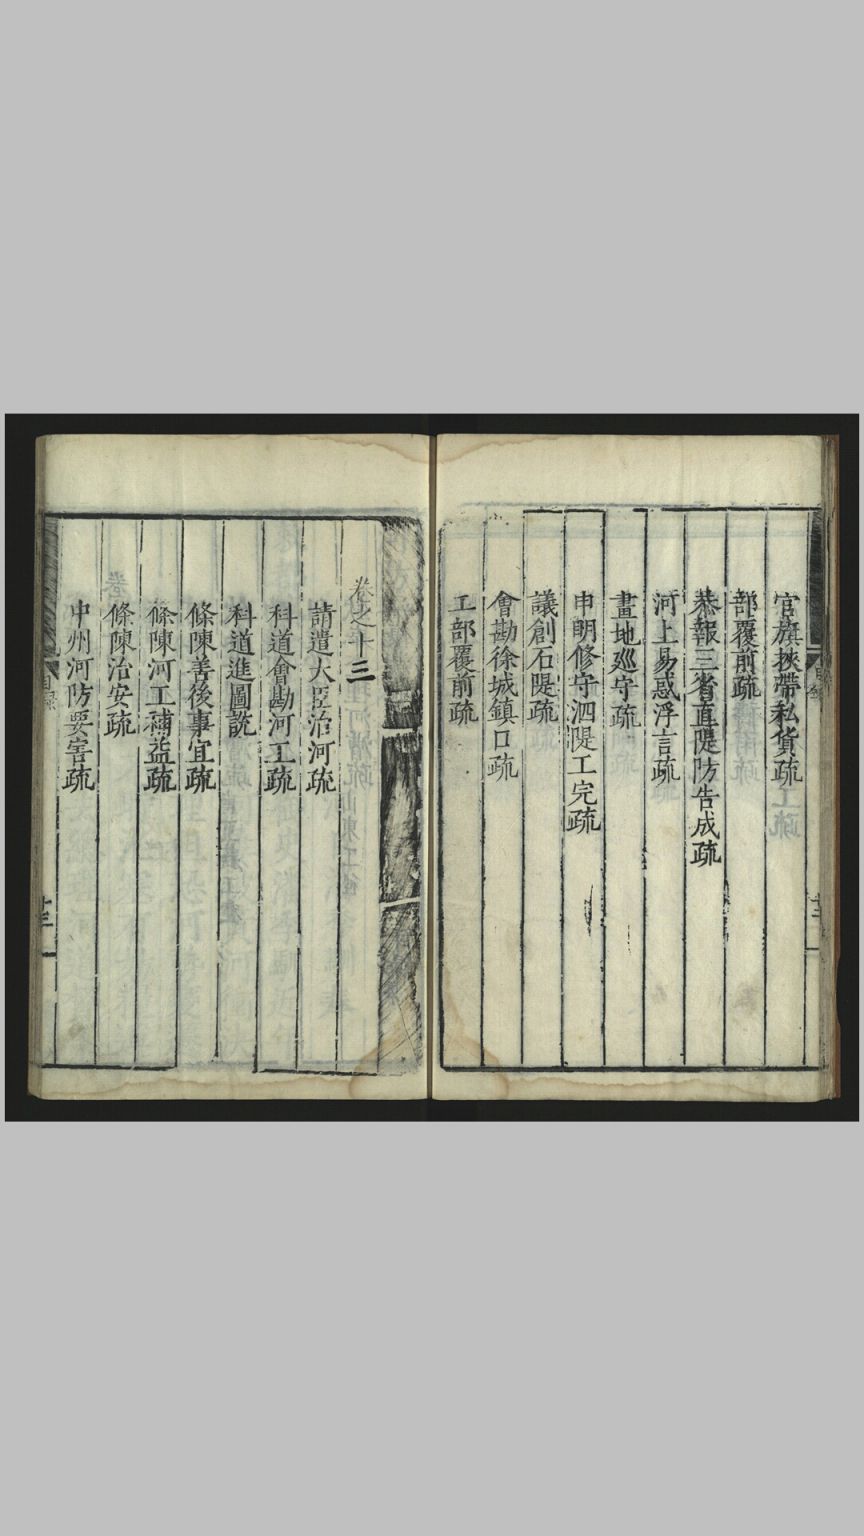 官旗挾帶私貨疏
部覆前疏
恭報三省直隄防告成疏
河上易惑浮言疏
畫地廵守疏
申明修守泗隄工完疏
議創石隄疏
會勘徐城鎮口疏
工部覆前疏
卷之十三
請遣大臣治河疏
科道會勘河工疏
科道進圖說
條陳善後事宜疏
條陳河工補益疏
條陳治安疏
中州河防要害疏
目錄